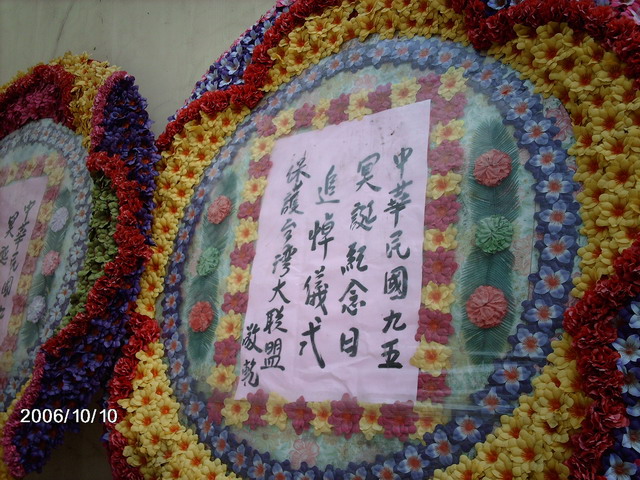 中華民國九五
冥誕紀念日
追悼儀式
保護台灣大聯盟
敬輓
中華民國
冥誕
2006/10/10